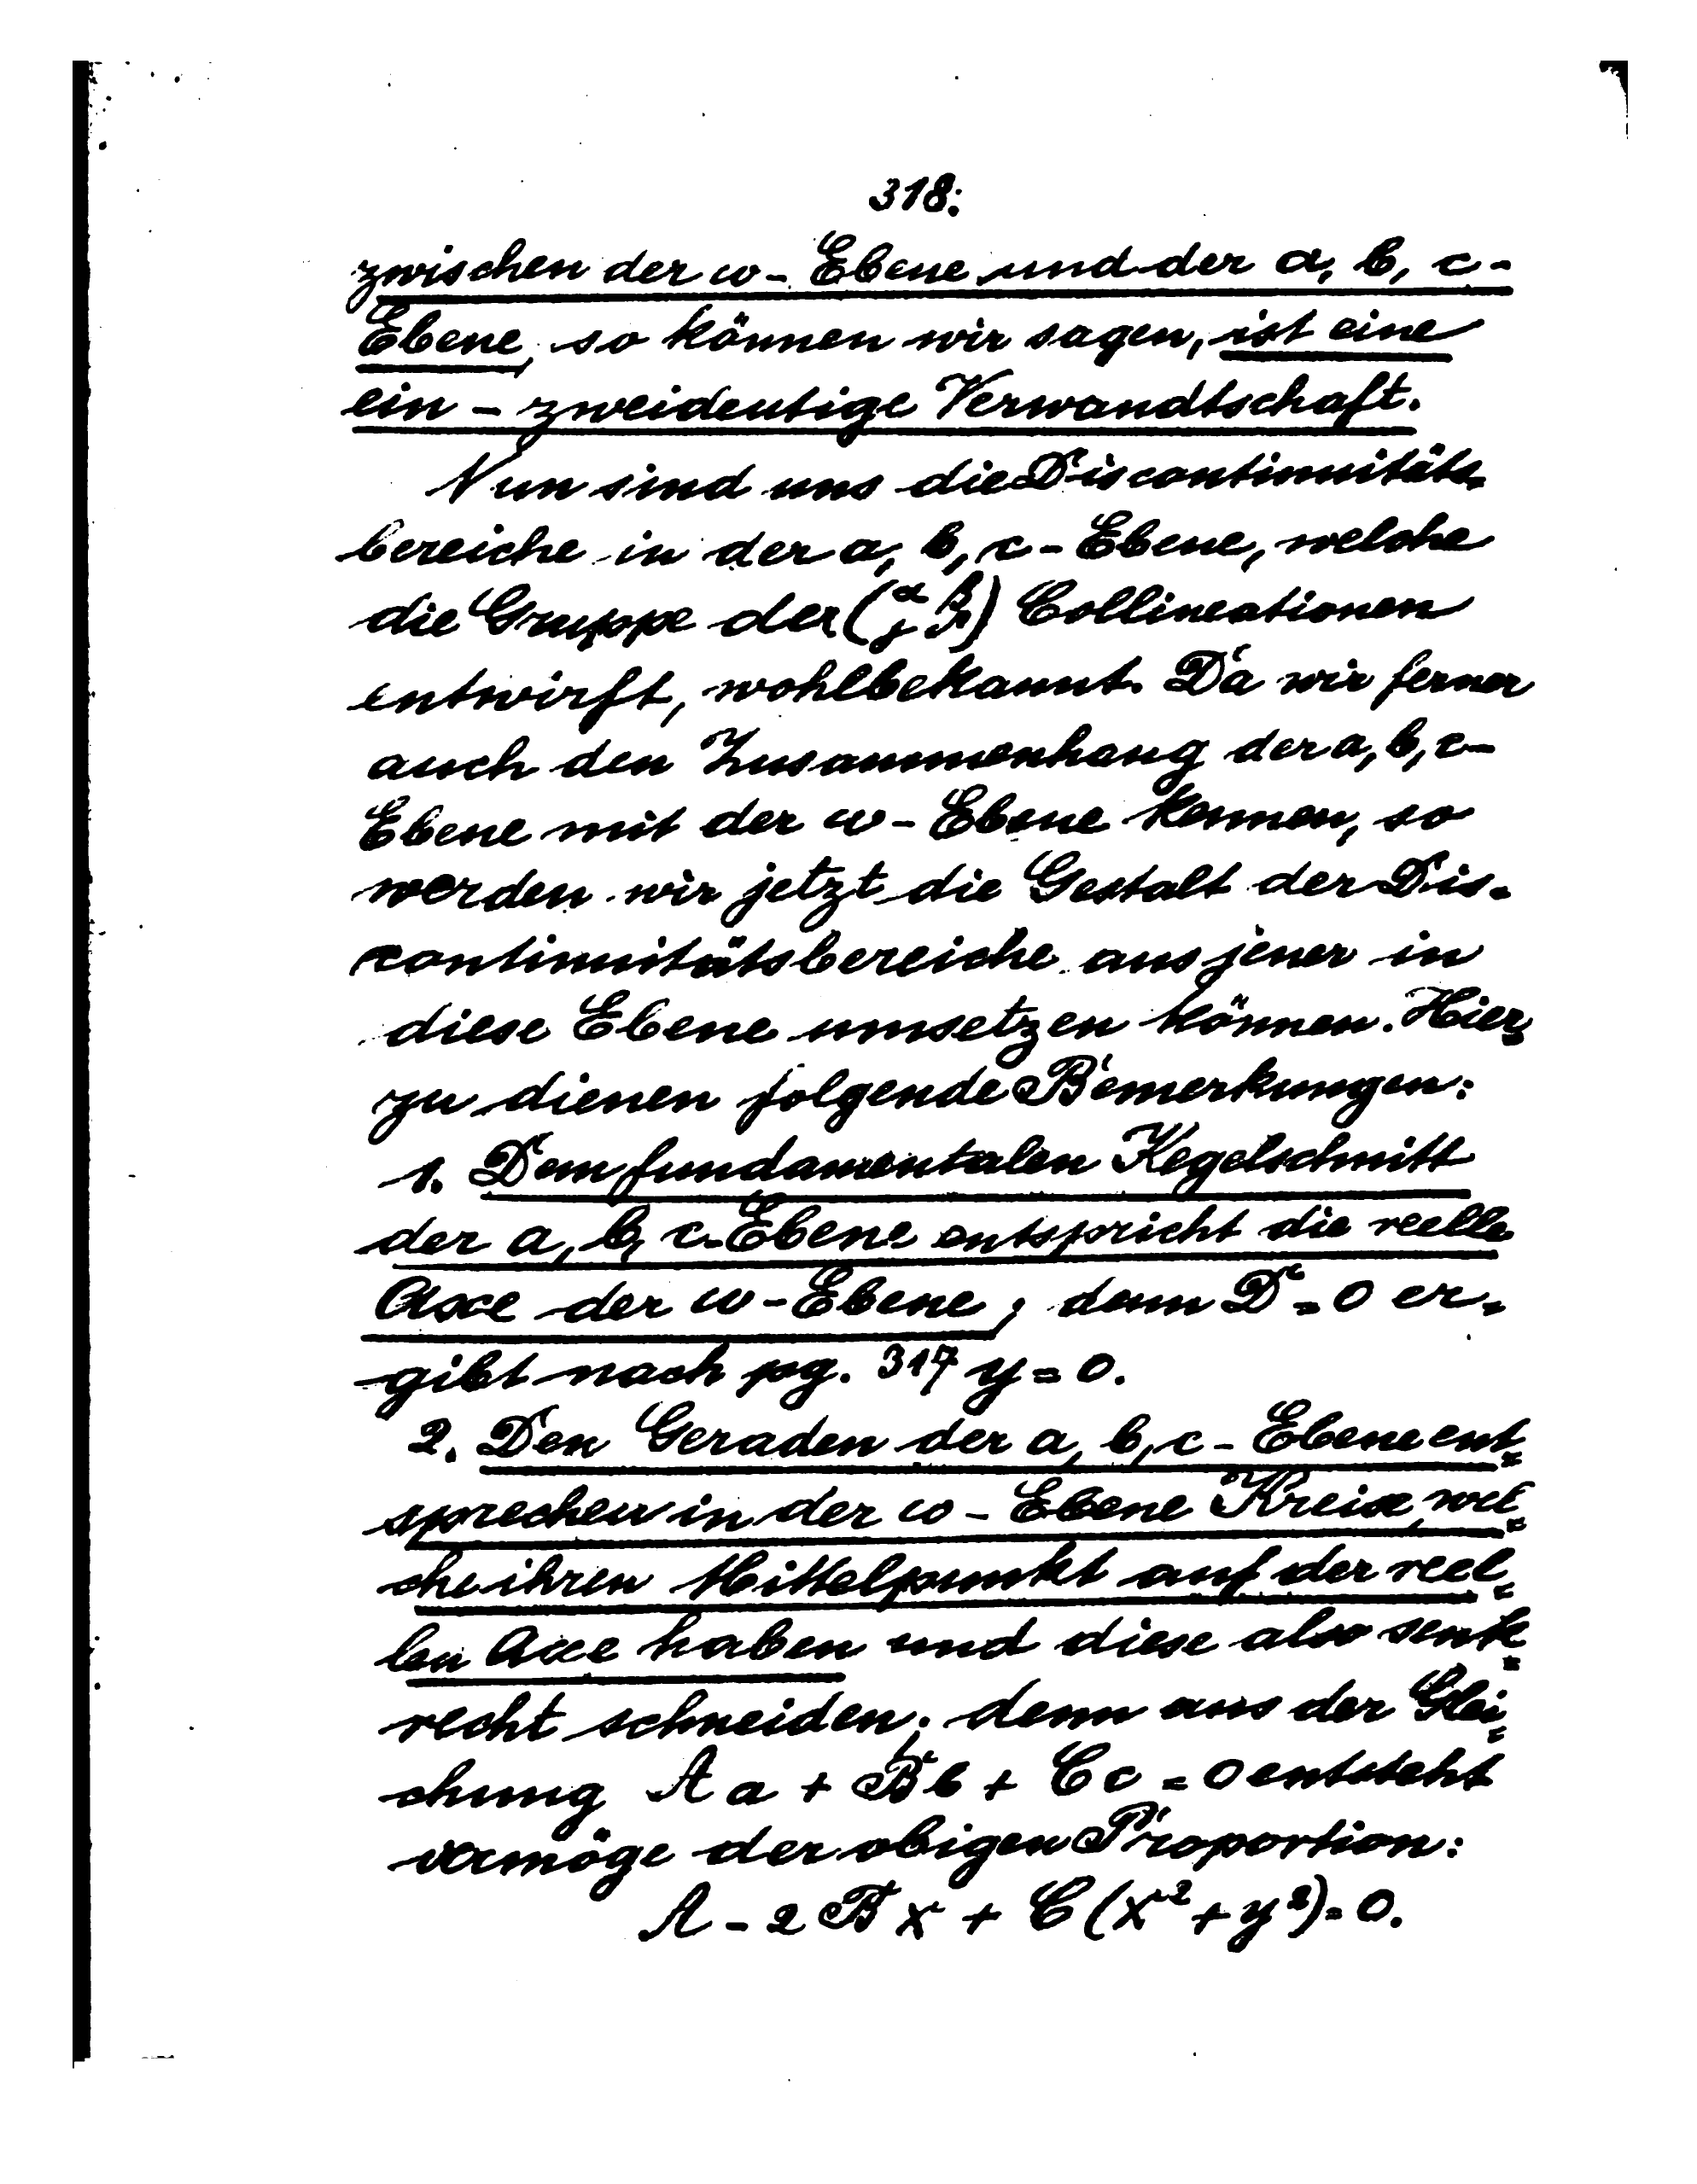 318.
zwischen der ω-Ebene und der a, b, c-
Ebene, so können wir sagen, ist eine
ein-zweideutige Verwandtschaft.
Nun sind uns die Discontinuitäts-
bereiche in der a, b, c-Ebene, welche
die Gruppe der (α β γ δ) Collineationen
entwirft, wohlbekannt. Da wir ferner
auch den Zusammenhang der a, b, c-
Ebene mit der ω-Ebene kennen, so
werden wir jetzt die Gestalt der Dis-
continuitätsbereiche aus jener in
diese Ebene umsetzen können. Hier-
zu dienen folgende Bemerkungen:
1. Dem fundamentalen Kegelschnitt
der a, b, c-Ebene entspricht die reelle
Axe der ω-Ebene; denn D = 0 er-
gibt nach pg. 317 y = 0.
2. Den Geraden der a, b, c-Ebene ent-
sprechen in der ω-Ebene Kreise, wel-
che ihren Mittelpunkt auf der reel-
len Axe haben und diese also senk-
recht schneiden; denn aus der Glei-
chung Aa + Bb + Cc = 0 entsteht
vermöge der obigen Proportion:
A - 2Bx + C(x² + y²) = 0.